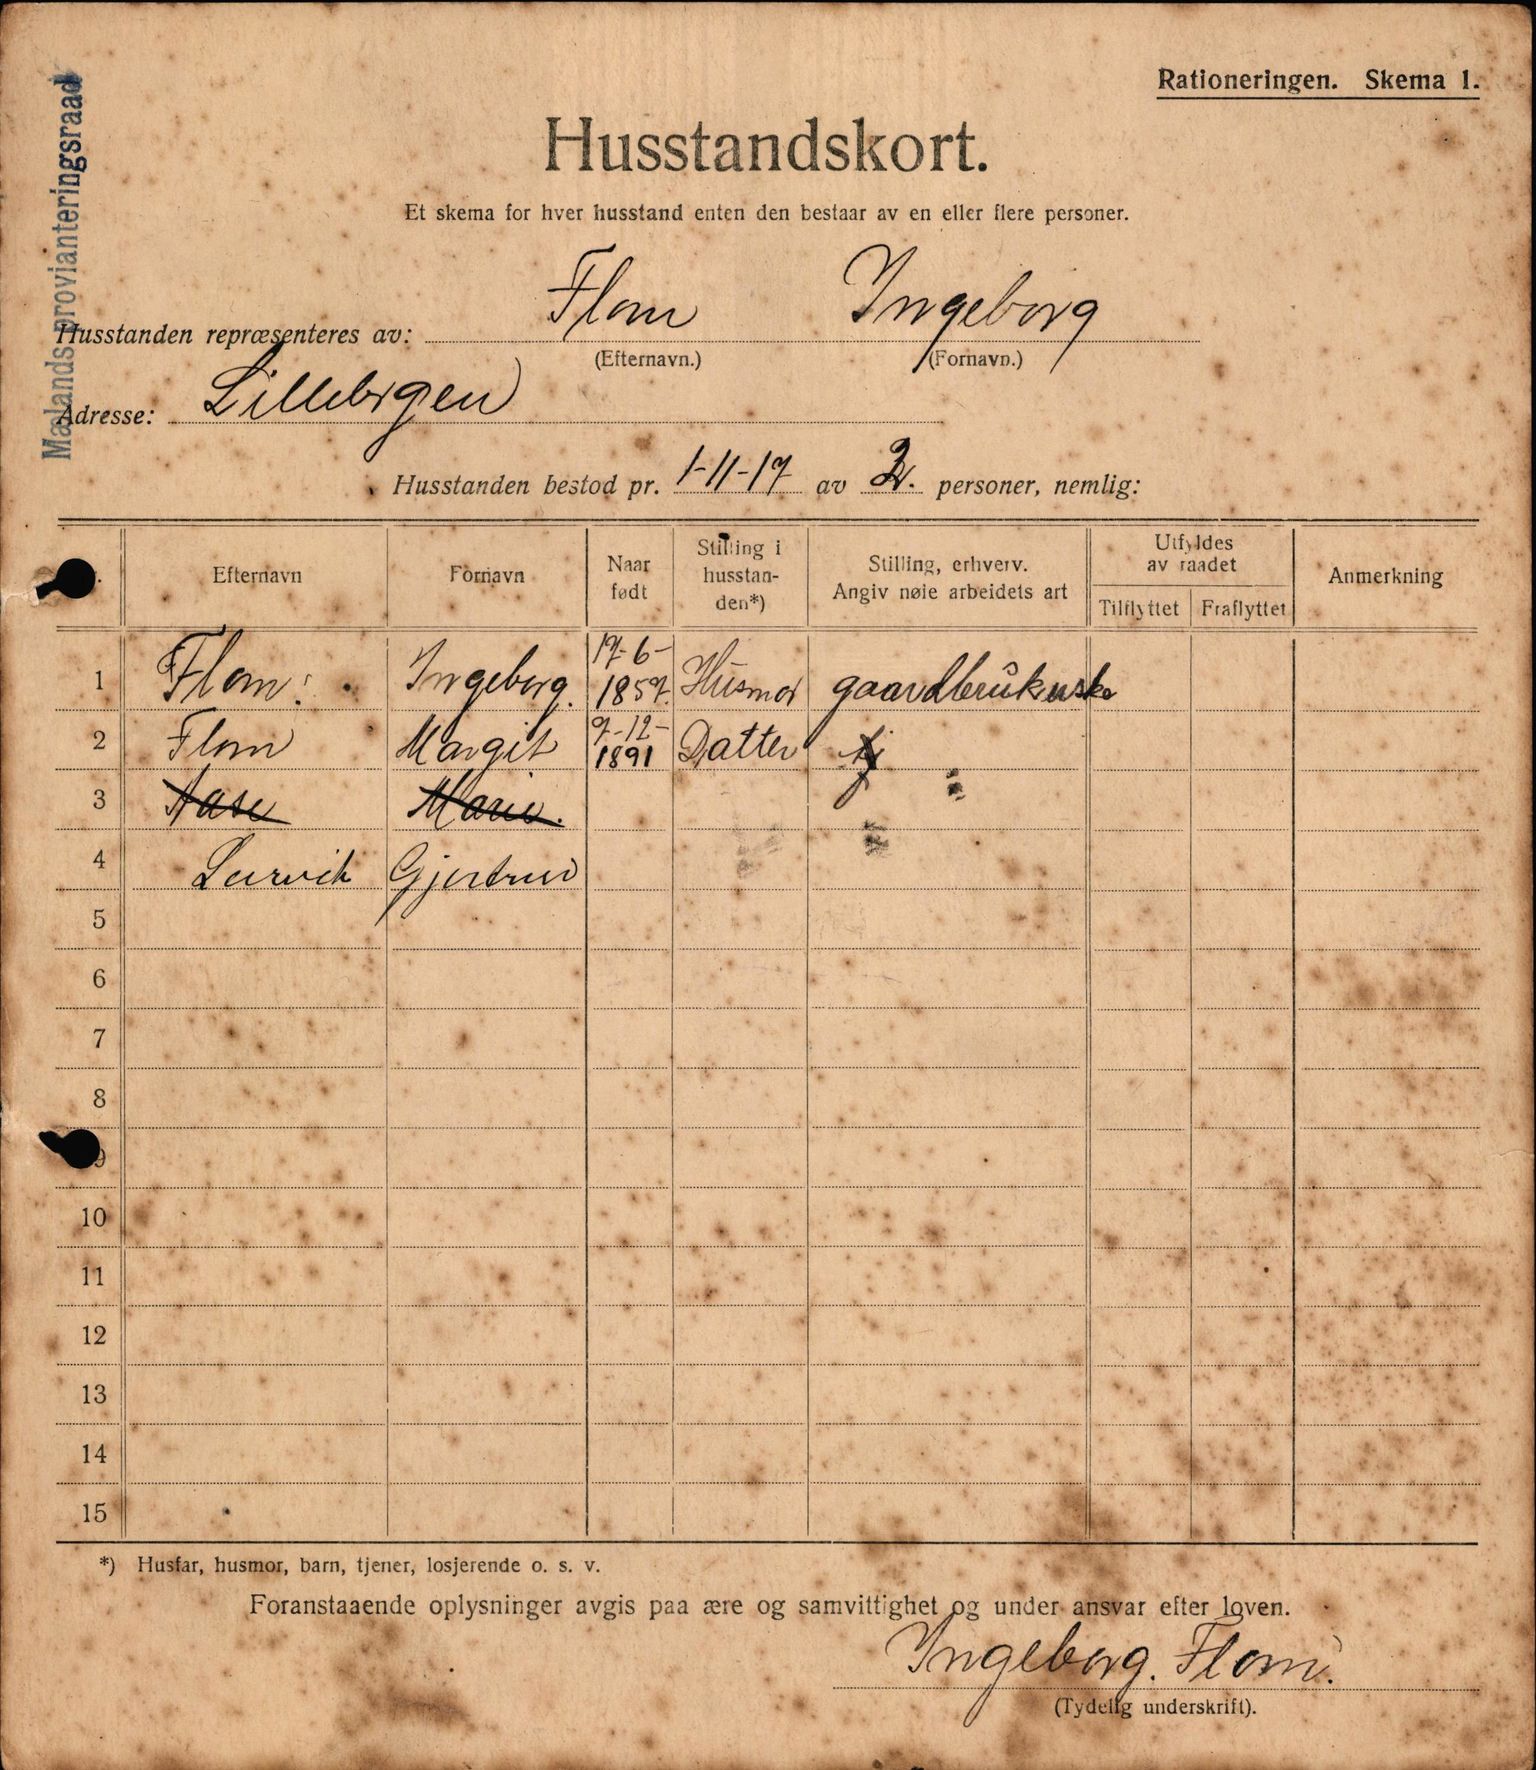 Mælands provianteringsraad
Rationeringen. Skema 1.
Husstandskort.
Et skema for hver husstand enten den bestaar av en eller flere personer.
Husstanden repræsenteres av: Flom Ingeborg
(Efternavn.) (Fornavn.)
Adresse: Lillebrgen
Husstanden bestod pr. 1-11-17 av 2. personer, nemlig:
Efternavn Fornavn Naar født Stilling i husstanden*) Stilling, erhverv. Angiv nøie arbeidets art Utfyldes av raadet Tilflyttet Fraflyttet Anmerkning
1 Flom. Ingeborg. 17-6-1857. Husmor gaardbrukerske
2 Flom Margit 7-12-1891 Datter
3 Aase Marie.
4 Leirvik Gjertrud
5
6
7
8
9
10
11
12
13
14
15
*) Husfar, husmor, barn, tjener, losjerende o. s. v.
Foranstaaende oplysninger avgis paa ære og samvittighet og under ansvar efter loven.
Ingeborg. Flom.
(Tydelig underskrift).